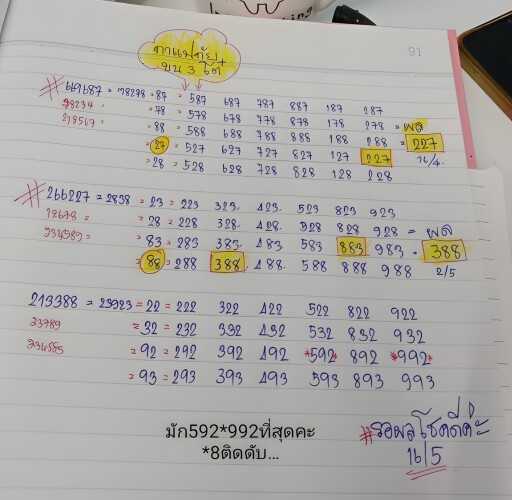 91
กาแฟภัย
บน 3 โต๊
# 669687 = 78278 = 87 = 587 687 787 887 187 287
78234 = 78 = 578 678 778 878 178 278 = ผล
218567 = 88 = 588 688 788 888 188 288 = 227
= 27 = 527 627 727 827 127 227 16/4
= 28 = 528 628 728 828 128 228
# 266227 = 2838 = 23 = 223 323 423 523 823 923
12678 = = 28 = 228 328 428 528 828 928 = ผล
234589 = = 83 = 283 383 483 583 883 983 = 388
= 88 = 288 388 488 588 888 988 2/5
219388 = 23923 = 22 = 222 322 422 522 822 922
23789 = 32 = 232 332 432 532 832 932
= 92 = 292 392 492 *592* 892 *992*
= 93 = 293 393 493 593 893 993
มัก592*992ที่สุดคะ
*8ติดดับ...
# รอผลโชคดีค่ะ
16/5